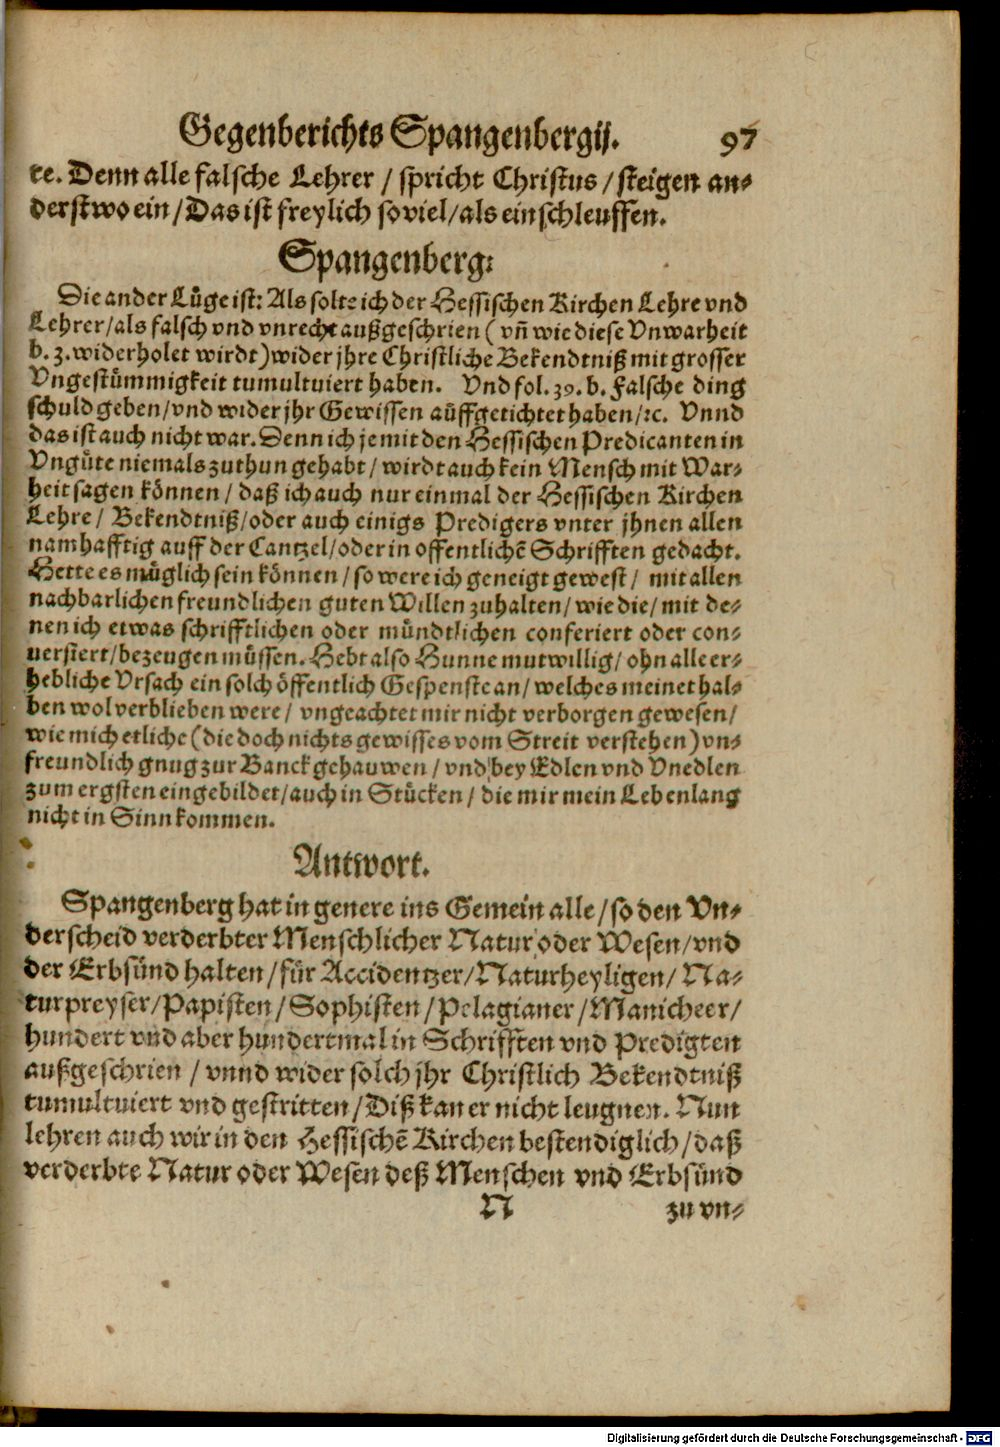 Gegenberichts Spangenbergij. 97
te. Denn alle falsche Lehrer / spricht Christus / steigen an⸗
derstwo ein / Das ist freylich so viel / als einschleuffen.
Spangenberg:
Die ander Lüge ist: Als solte ich der Hessischen Kirchen Lehre vnd
Lehrer / als falsch vnd vnrecht außgeschrien ( vñ wie diese Vnwarheit
b. 3. widerholet wirdt ) wider jhre Christliche Bekendtniß mit grosser
Vngestümmigkeit tumultuiert haben. Vnd fol. 39. b. Falsche ding
schuld geben / vnd wider jhr Gewissen auffgetichtet haben / ꝛc. Vnnd
das ist auch nicht war. Denn ich je mit den Hessischen Predicanten in
Vngüte niemals zuthun gehabt / wirdt auch kein Mensch mit War⸗
heit sagen können / daß ich auch nur einmal der Hessischen Kirchen
Lehre / Bekendtniß / oder auch einigs Predigers vnter jhnen allen
namhafftig auff der Cantzel / oder in offentlichẽ Schrifften gedacht.
Hette es müglich sein können / so were ich geneigt gewest / mit allen
nachbarlichen freundlichen guten Willen zuhalten / wie die / mit de⸗
nen ich etwas schrifftlichen oder mündtlichen conferiert oder con⸗
uersiert / bezeugen müssen. Hebt also Hunne mutwillig / ohn alle er⸗
hebliche Vrsach ein solch öffentlich Gespenste an / welches meinet hal⸗
ben wol verblieben were / vngeachtet mir nicht verborgen gewesen /
wie mich etliche ( die doch nichts gewisses vom Streit verstehen ) vn⸗
freundlich gnug zur Banck gehauwen / vnd bey Edlen vnd Vnedlen
zum ergsten eingebildet / auch in Stücken / die mir mein Lebenlang
nicht in Sinn kommen.
Antwort.
Spangenberg hat in genere ins Gemein alle / so den Vn⸗
derscheid verderbter Menschlicher Natur oder Wesen / vnd
der Erbsünd halten / für Accidentzer / Naturheyligen / Na⸗
turpreyser / Papisten / Sophisten / Pelagianer / Manicheer /
hundert vnd aber hundertmal in Schrifften vnd Predigten
außgeschrien / vnnd wider solch jhr Christlich Bekendtniß
tumultuiert vnd gestritten / Diß kan er nicht leugnen. Nun
lehren auch wir in den Hessischẽ Kirchen bestendiglich / daß
verderbte Natur oder Wesen deß Menschen vnd Erbsünd
N zu vn⸗
Digitalisierung gefördert durch die Deutsche Forschungsgemeinschaft - DFG